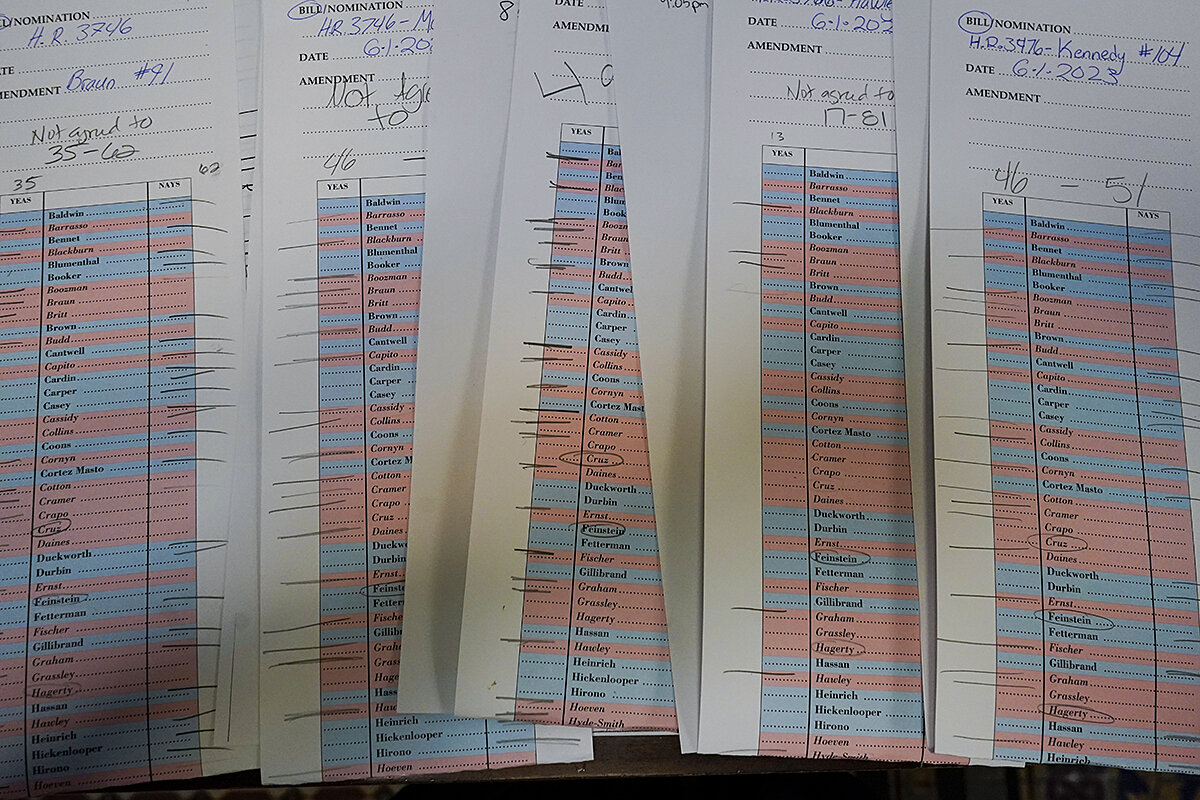 BILL/NOMINATION
H.R. 3746
DATE
AMENDMENT Braun #91
Not agrud to
35-62
35
62
YEAS
NAYS
Baldwin
Barrasso
Bennet
Blackburn
Blumenthal
Booker
Boozman
Braun
Britt
Brown
Budd
Cantwell
Capito
Cardin
Carper
Casey
Cassidy
Collins
Coons
Cornyn
Cortez Masto
Cotton
Cramer
Crapo
Cruz
Daines
Duckworth
Durbin
Ernst
Feinstein
Fetterman
Fischer
Gillibrand
Graham
Grassley
Hagerty
Hassan
Hawley
Heinrich
Hickenlooper
Hirono
Hoeven
BILL/NOMINATION
H.R. 3746-
DATE 6-1-202
AMENDMENT
Not Agre
to
46
YEAS
Baldwin
Barrasso
Bennet
Blackburn
Blumenthal
Booker
Boozman
Braun
Britt
Brown
Budd
Cantwell
Capito
Cardin
Carper
Casey
Cassidy
Collins
Coons
Cornyn
Cortez M
Cotton
Cramer
Crapo
Cruz
Daines
Duckw
Durbin
Ernst
Feinst
Fetter
Fischer
Gillib
Grah
Grass
Hage
Hass
Haw
Heinrich
Hickenlooper
Hirono
Hoeven
8
DATE
9:05pm
YEAS
Bal
Bar
Ben
Blac
Blum
Book
Booz
Braun
Britt
Brown
Budd
Cantwel
Capito
Cardin
Carper
Casey
Cassidy
Collins
Coons
Cornyn
Cortez Mast
Cotton
Cramer
Crapo
Cruz
Daines
Duckworth
Durbin
Ernst
Feinstein
Fetterman
Fischer
Gillibrand
Graham
Grassley
Hagerty
Hassan
Hawley
Heinrich
Hickenlooper
Hirono
Hoeven
Hyde-Smith
DATE 6-1-202
AMENDMENT
Not agrud to
17-81
13
YEAS
Baldwin
Barrasso
Bennet
Blackburn
Blumenthal
Booker
Boozman
Braun
Britt
Brown
Budd
Cantwell
Capito
Cardin
Carper
Casey
Cassidy
Collins
Coons
Cornyn
Cortez Masto
Cotton
Cramer
Crapo
Cruz
Daines
Duckworth
Durbin
Ernst
Feinstein
Fetterman
Fischer
Gillibrand
Graham
Grassley
Hagerty
Hassan
Hawley
Heinrich
Hickenlooper
Hirono
Hoeven
BILL/NOMINATION
H.R. 3476- Kennedy #104
DATE 6-1-2023
AMENDMENT
46 - 51
YEAS
NAYS
Baldwin
Barrasso
Bennet
Blackburn
Blumenthal
Booker
Boozman
Braun
Britt
Brown
Budd
Cantwell
Capito
Cardin
Carper
Casey
Cassidy
Collins
Coons
Cornyn
Cortez Masto
Cotton
Cramer
Crapo
Cruz
Daines
Duckworth
Durbin
Ernst
Feinstein
Fetterman
Fischer
Gillibrand
Graham
Grassley
Hagerty
Hassan
Hawley
Heinrich